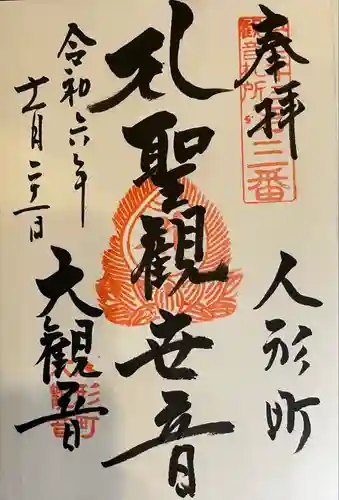 奉拝
観音札所
三番
人形町
聖観世音
令和六年
十二月二十一日
大観音